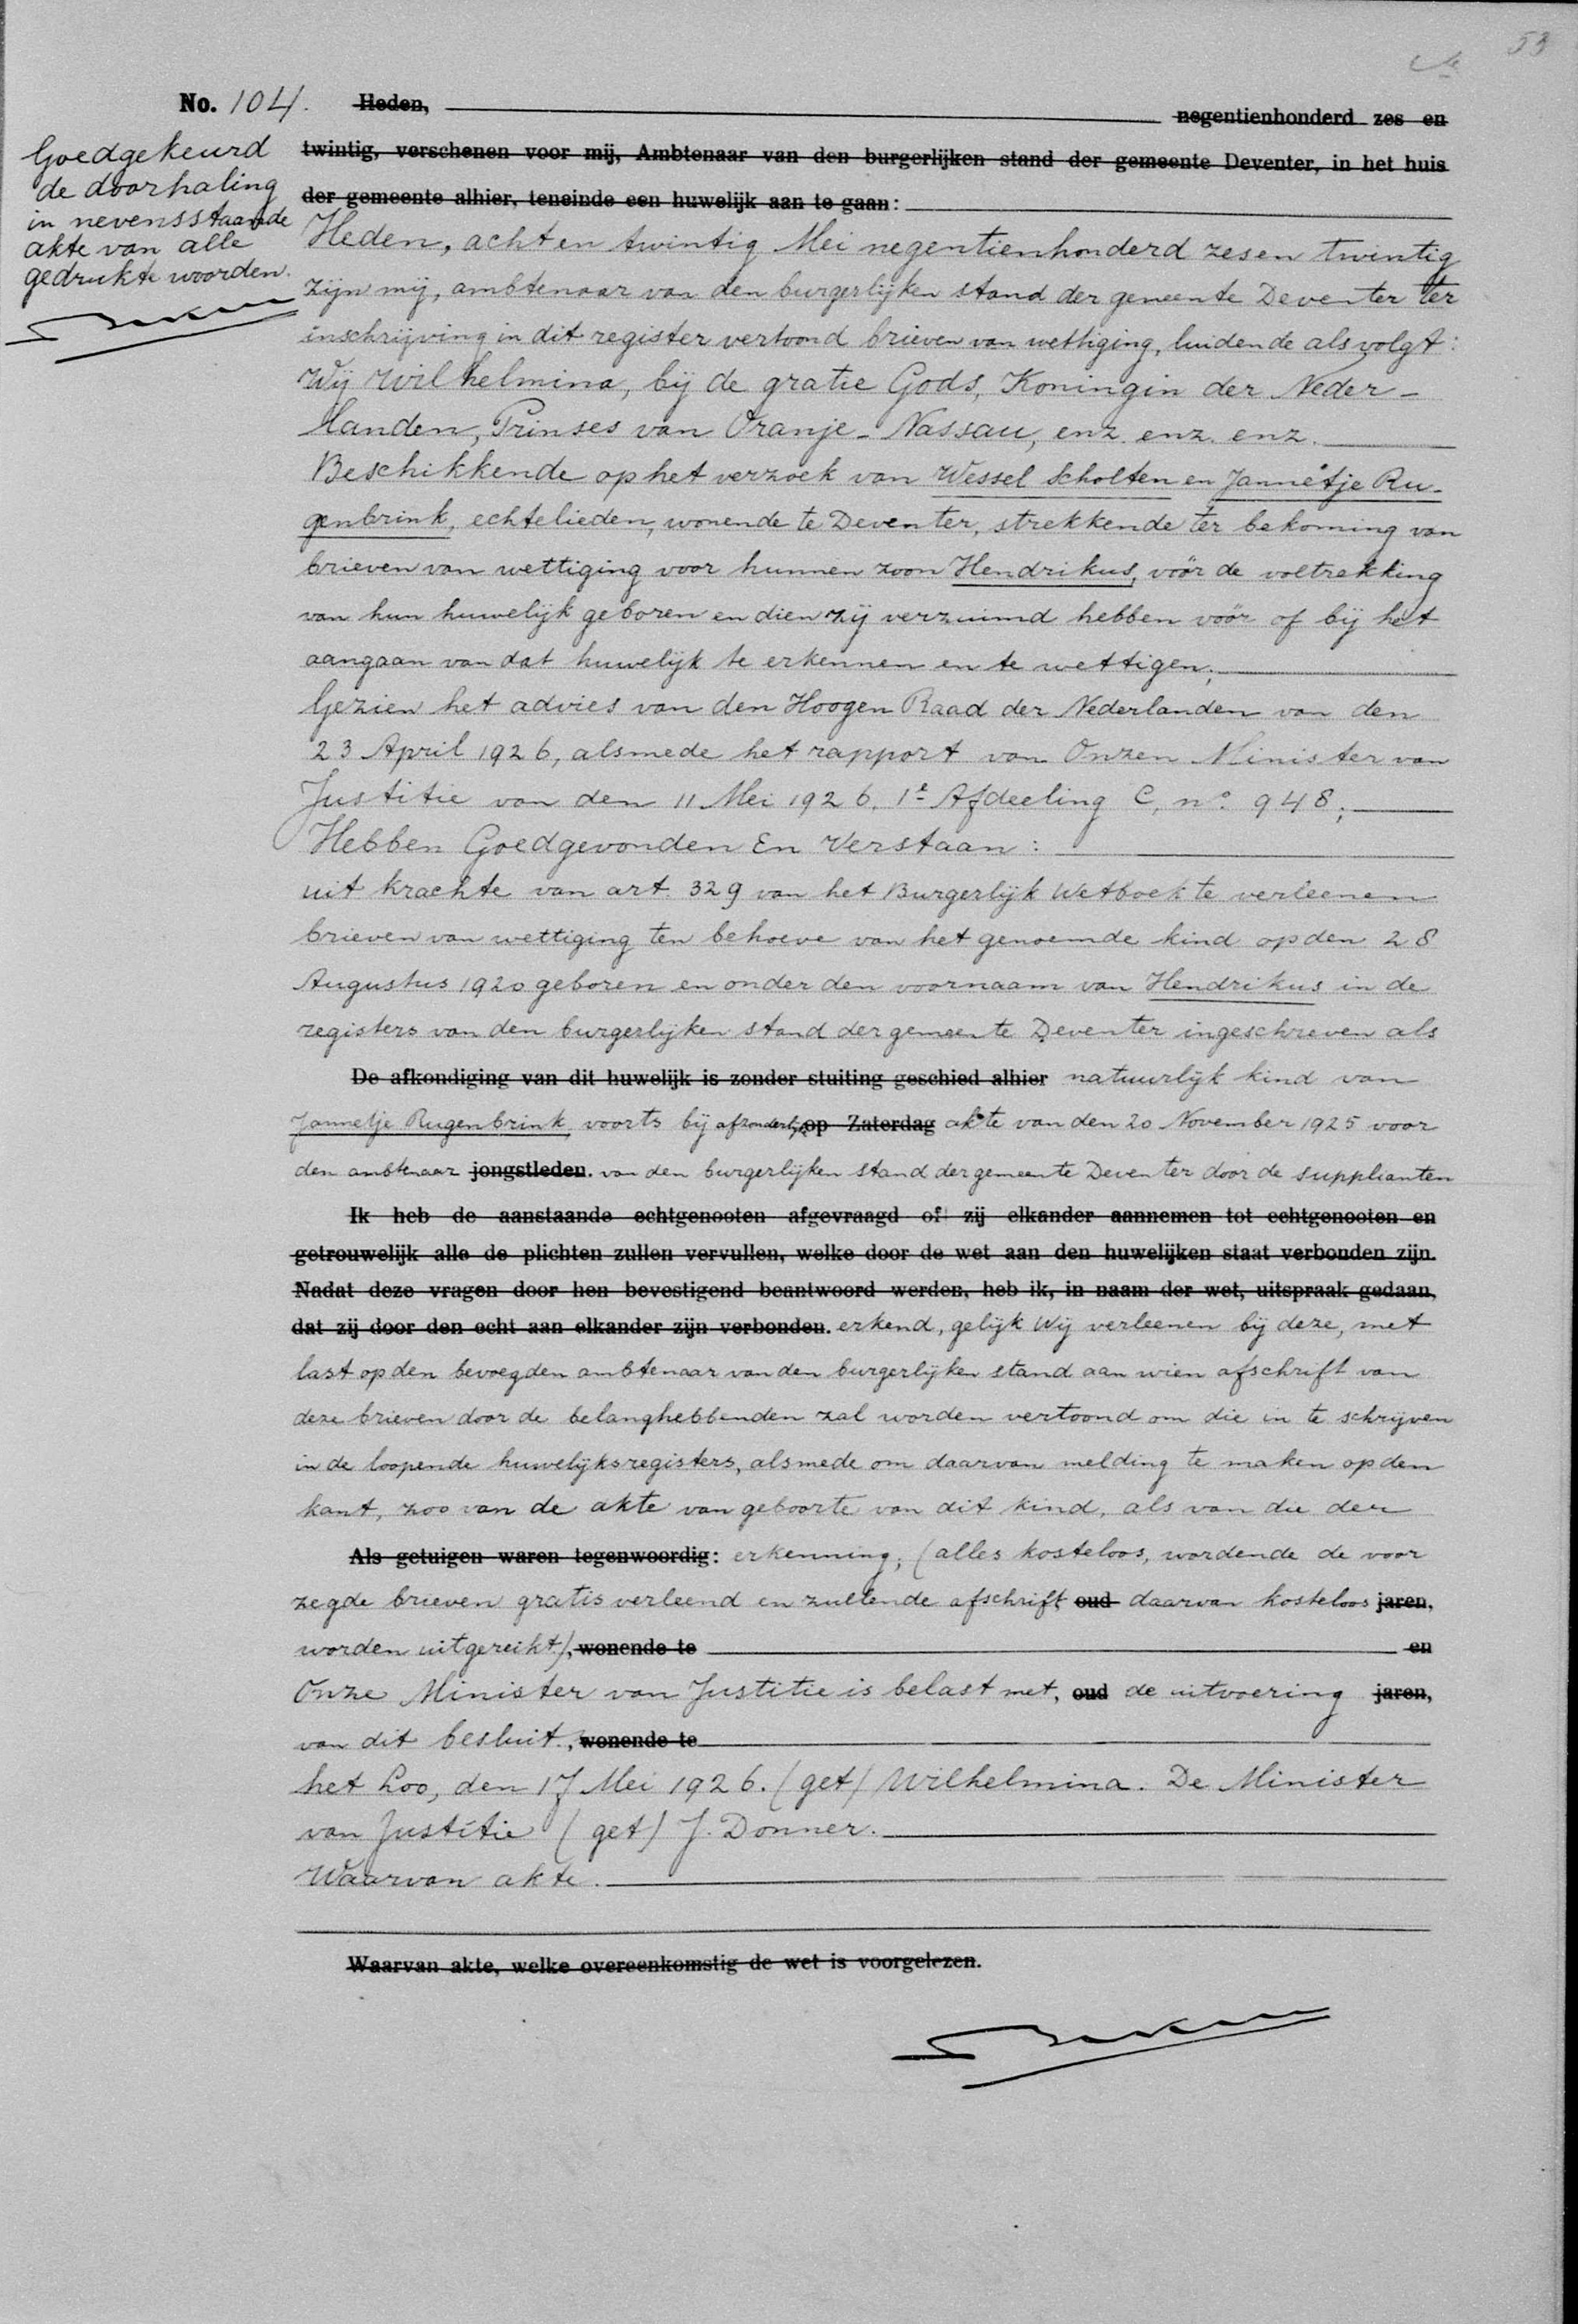 53
No. 104.
Goedgekeurd
de doorhaling
in nevensstaande
akte van alle
gedrukte woorden.
Heden, negentienhonderd zes en
twintig, verschenen voor mij, Ambtenaar van den burgerlijken stand der gemeente Deventer, in het huis
der gemeente alhier, teneinde een huwelijk aan te gaan:
Heden, acht en twintig Mei negentienhonderd zes en twintig
zijn mij, ambtenaar van den burgerlijken stand der gemeente Deventer ter
inschrijving in dit register vertoond brieven van wettiging, luidende als volgt:
Wij Wilhelmina, bij de gratie Gods, Koningin der Neder-
landen, Prinses van Oranje-Nassau, enz. enz. enz.
Beschikkende op het verzoek van Wessel Scholten en Jannetje Ru-
genbrink, echtelieden, wonende te Deventer, strekkende ter bekoming van
brieven van wettiging voor hunnen zoon Hendrikus, vóór de voltrekking
van hun huwelijk geboren en dien zij verzuimd hebben vóór of bij het
aangaan van dat huwelijk te erkennen en te wettigen;
Gezien het advies van den Hoogen Raad der Nederlanden van den
23 April 1926, alsmede het rapport van Onzen Minister van
Justitie van den 11 Mei 1926, 1e Afdeeling C, no. 948;
Hebben Goedgevonden En Verstaan:
uit krachte van art. 329 van het Burgerlijk Wetboek te verleenen
brieven van wettiging ten behoeve van het genoemde kind op den 28
Augustus 1920 geboren en onder den voornaam van Hendrikus in de
registers van den burgerlijken stand der gemeente Deventer ingeschreven als
De afkondiging van dit huwelijk is zonder stuiting geschied alhier natuurlijk kind van
Jannetje Rugenbrink, voorts bij afzonderlijke op Zaterdag akte van den 20 November 1925 voor
den ambtenaar jongstleden. van den burgerlijken stand der gemeente Deventer door de supplianten
Ik heb de aanstaande echtgenooten afgevraagd of zij elkander aannemen tot echtgenooten en
getrouwelijk alle de plichten zullen vervullen, welke door de wet aan den huwelijken staat verbonden zijn.
Nadat deze vragen door hen bevestigend beantwoord werden, heb ik, in naam der wet, uitspraak gedaan,
dat zij door den echt aan elkander zijn verbonden. erkend, gelijk Wij verleenen bij deze, met
last op den bevoegden ambtenaar van den burgerlijken stand aan wien afschrift van
deze brieven door de belanghebbenden zal worden vertoond om die in te schrijven
in de loopende huwelijksregisters, alsmede om daarvan melding te maken op den
kant, zoo van de akte van geboorte van dit kind, als van die der
Als getuigen waren tegenwoordig: erkenning; (alles kosteloos, wordende de voor
zegde brieven gratis verleend en zullende afschrift oud daarvan kosteloos jaren,
worden uitgereikt), wonende te en
Onze Minister van Justitie is belast met, oud de uitvoering jaren,
van dit besluit., wonende te
het Loo, den 17 Mei 1926. (get) Wilhelmina. De Minister
van Justitie (get) J. Donner.
Waarvan akte.
Waarvan akte, welke overeenkomstig de wet is voorgelezen.